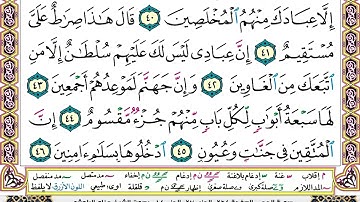 إِلَّا عِبَادَكَ مِنْهُمُ الْمُخْلَصِينَ ٤٠ قَالَ هَٰذَا صِرَاطٌ عَلَيَّ
مُسْتَقِيمٌ ٤١ إِنَّ عِبَادِي لَيْسَ لَكَ عَلَيْهِمْ سُلْطَانٌ إِلَّا مَنِ
اتَّبَعَكَ مِنَ الْغَاوِينَ ٤٢ وَإِنَّ جَهَنَّمَ لَمَوْعِدُهُمْ أَجْمَعِينَ ٤٣
لَهَا سَبْعَةُ أَبْوَابٍ لِّكُلِّ بَابٍ مِّنْهُمْ جُزْءٌ مَّقْسُومٌ ٤٤ إِنَّ
الْمُتَّقِينَ فِي جَنَّاتٍ وَعُيُونٍ ٤٥ ادْخُلُوهَا بِسَلَامٍ آمِنِينَ ٤٦